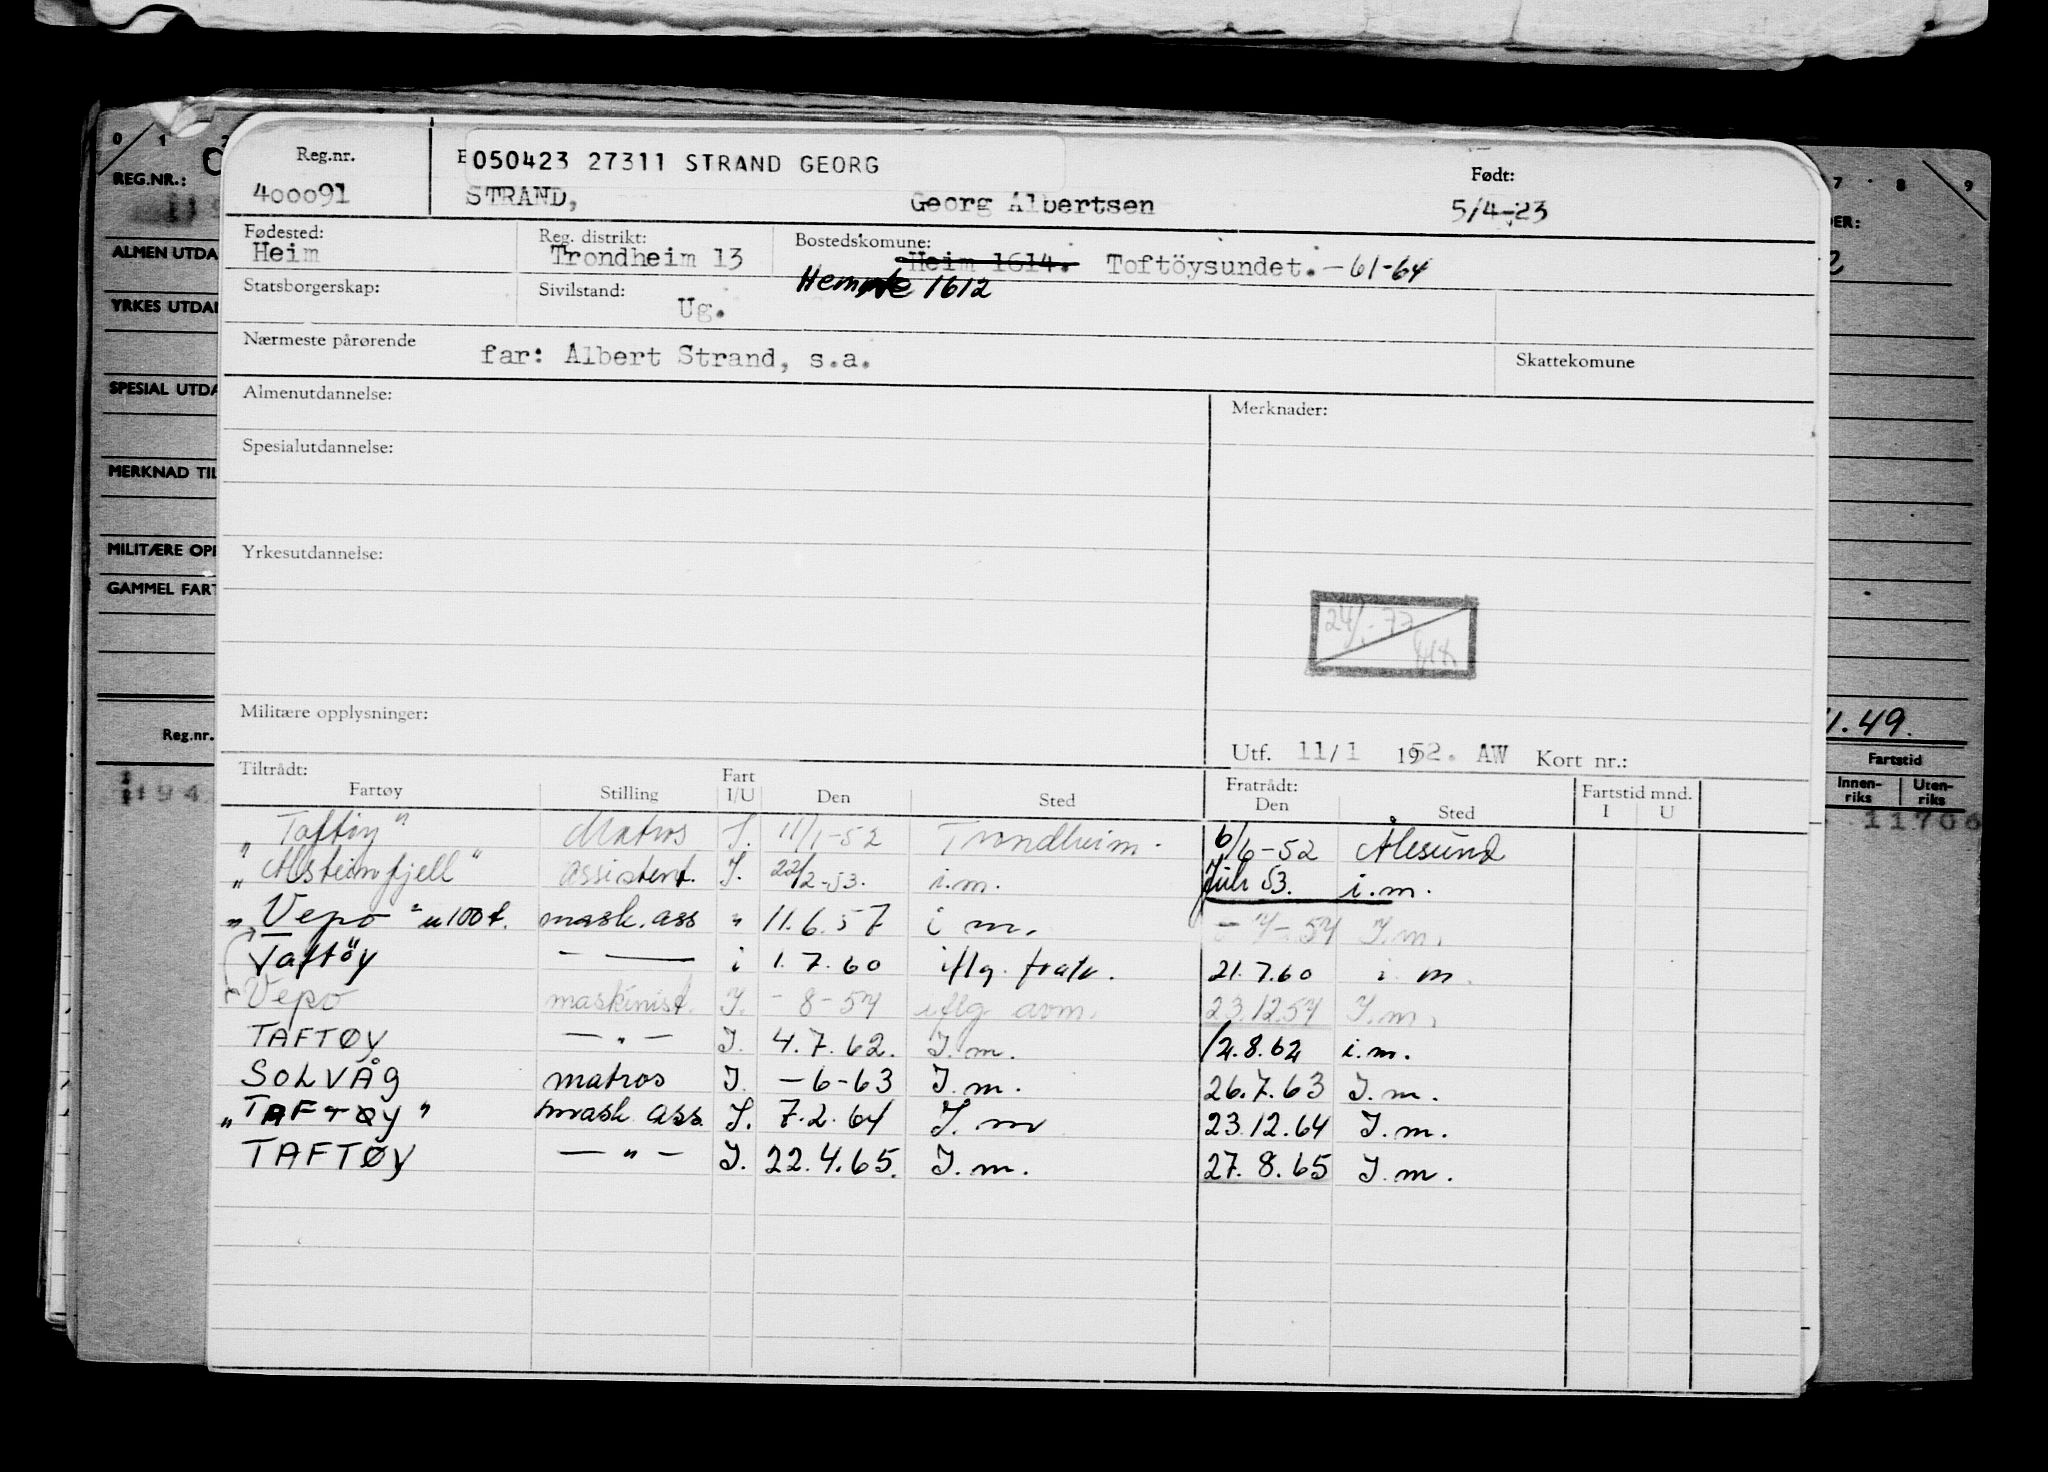 Reg.nr.
050423 27311 STRAND GEORG
Født:
400091 STRAND, Georg Albertsen 5/4-23
Fødested: Reg. distrikt: Bostedskomune:
Heim Trondheim 13 Heim 1614. Toftöysundet. -61-64
Hemne 1612
Statsborgerskap: Sivilstand:
Ug.
Nærmeste pårørende far: Albert Strand, s.a. Skattekomune
Almenutdannelse: Merknader:
Spesialutdannelse:
Yrkesutdannelse:
24/ -77
Militære opplysninger:
Utf. 11/1 1952. AW Kort nr.:
Tiltrådt: Fart Fratrådt: Fartstid mnd.
Fartøy Stilling I/U Den Sted Den Sted I U
"Taftöy" Matros I. 11/1-52 Trondheim. 6/6-52 Ålesund
"Alsteinfjell" assistent. I. 22/2-53. i.m. Juli 53. i.m.
"Vepo" u 100 t. mask. ass " 11.6.57 i m. - 7-57 I.m.
Taftöy - — i 1.7.60 iflg. fratr. 21.7.60 i. m.
Vepo maskinist. I. - 8-57 iflg avm. 23.12.57 I.m.
TAFTØY — " — I. 4.7.62. I.m. 12.8.62 i.m.
SOLVÅG matros I. -6-63 I.m. 26.7.63 I.m.
"TAFTØY" mask. ass. I. 7.2.64 I.m 23.12.64 I.m.
TAFTØY — " — I. 22.4.65. I.m. 27.8.65 I.m.
0 1
REG.NR.:
ALMEN UTDA
YRKES UTDA
SPESIAL UTDA
MERKNAD TIL
MILITÆRE OPP
GAMMEL FART
Reg.nr.
7 8 9
DER:
2
1.49.
Fartstid
Innen-riks Uten-riks
11706